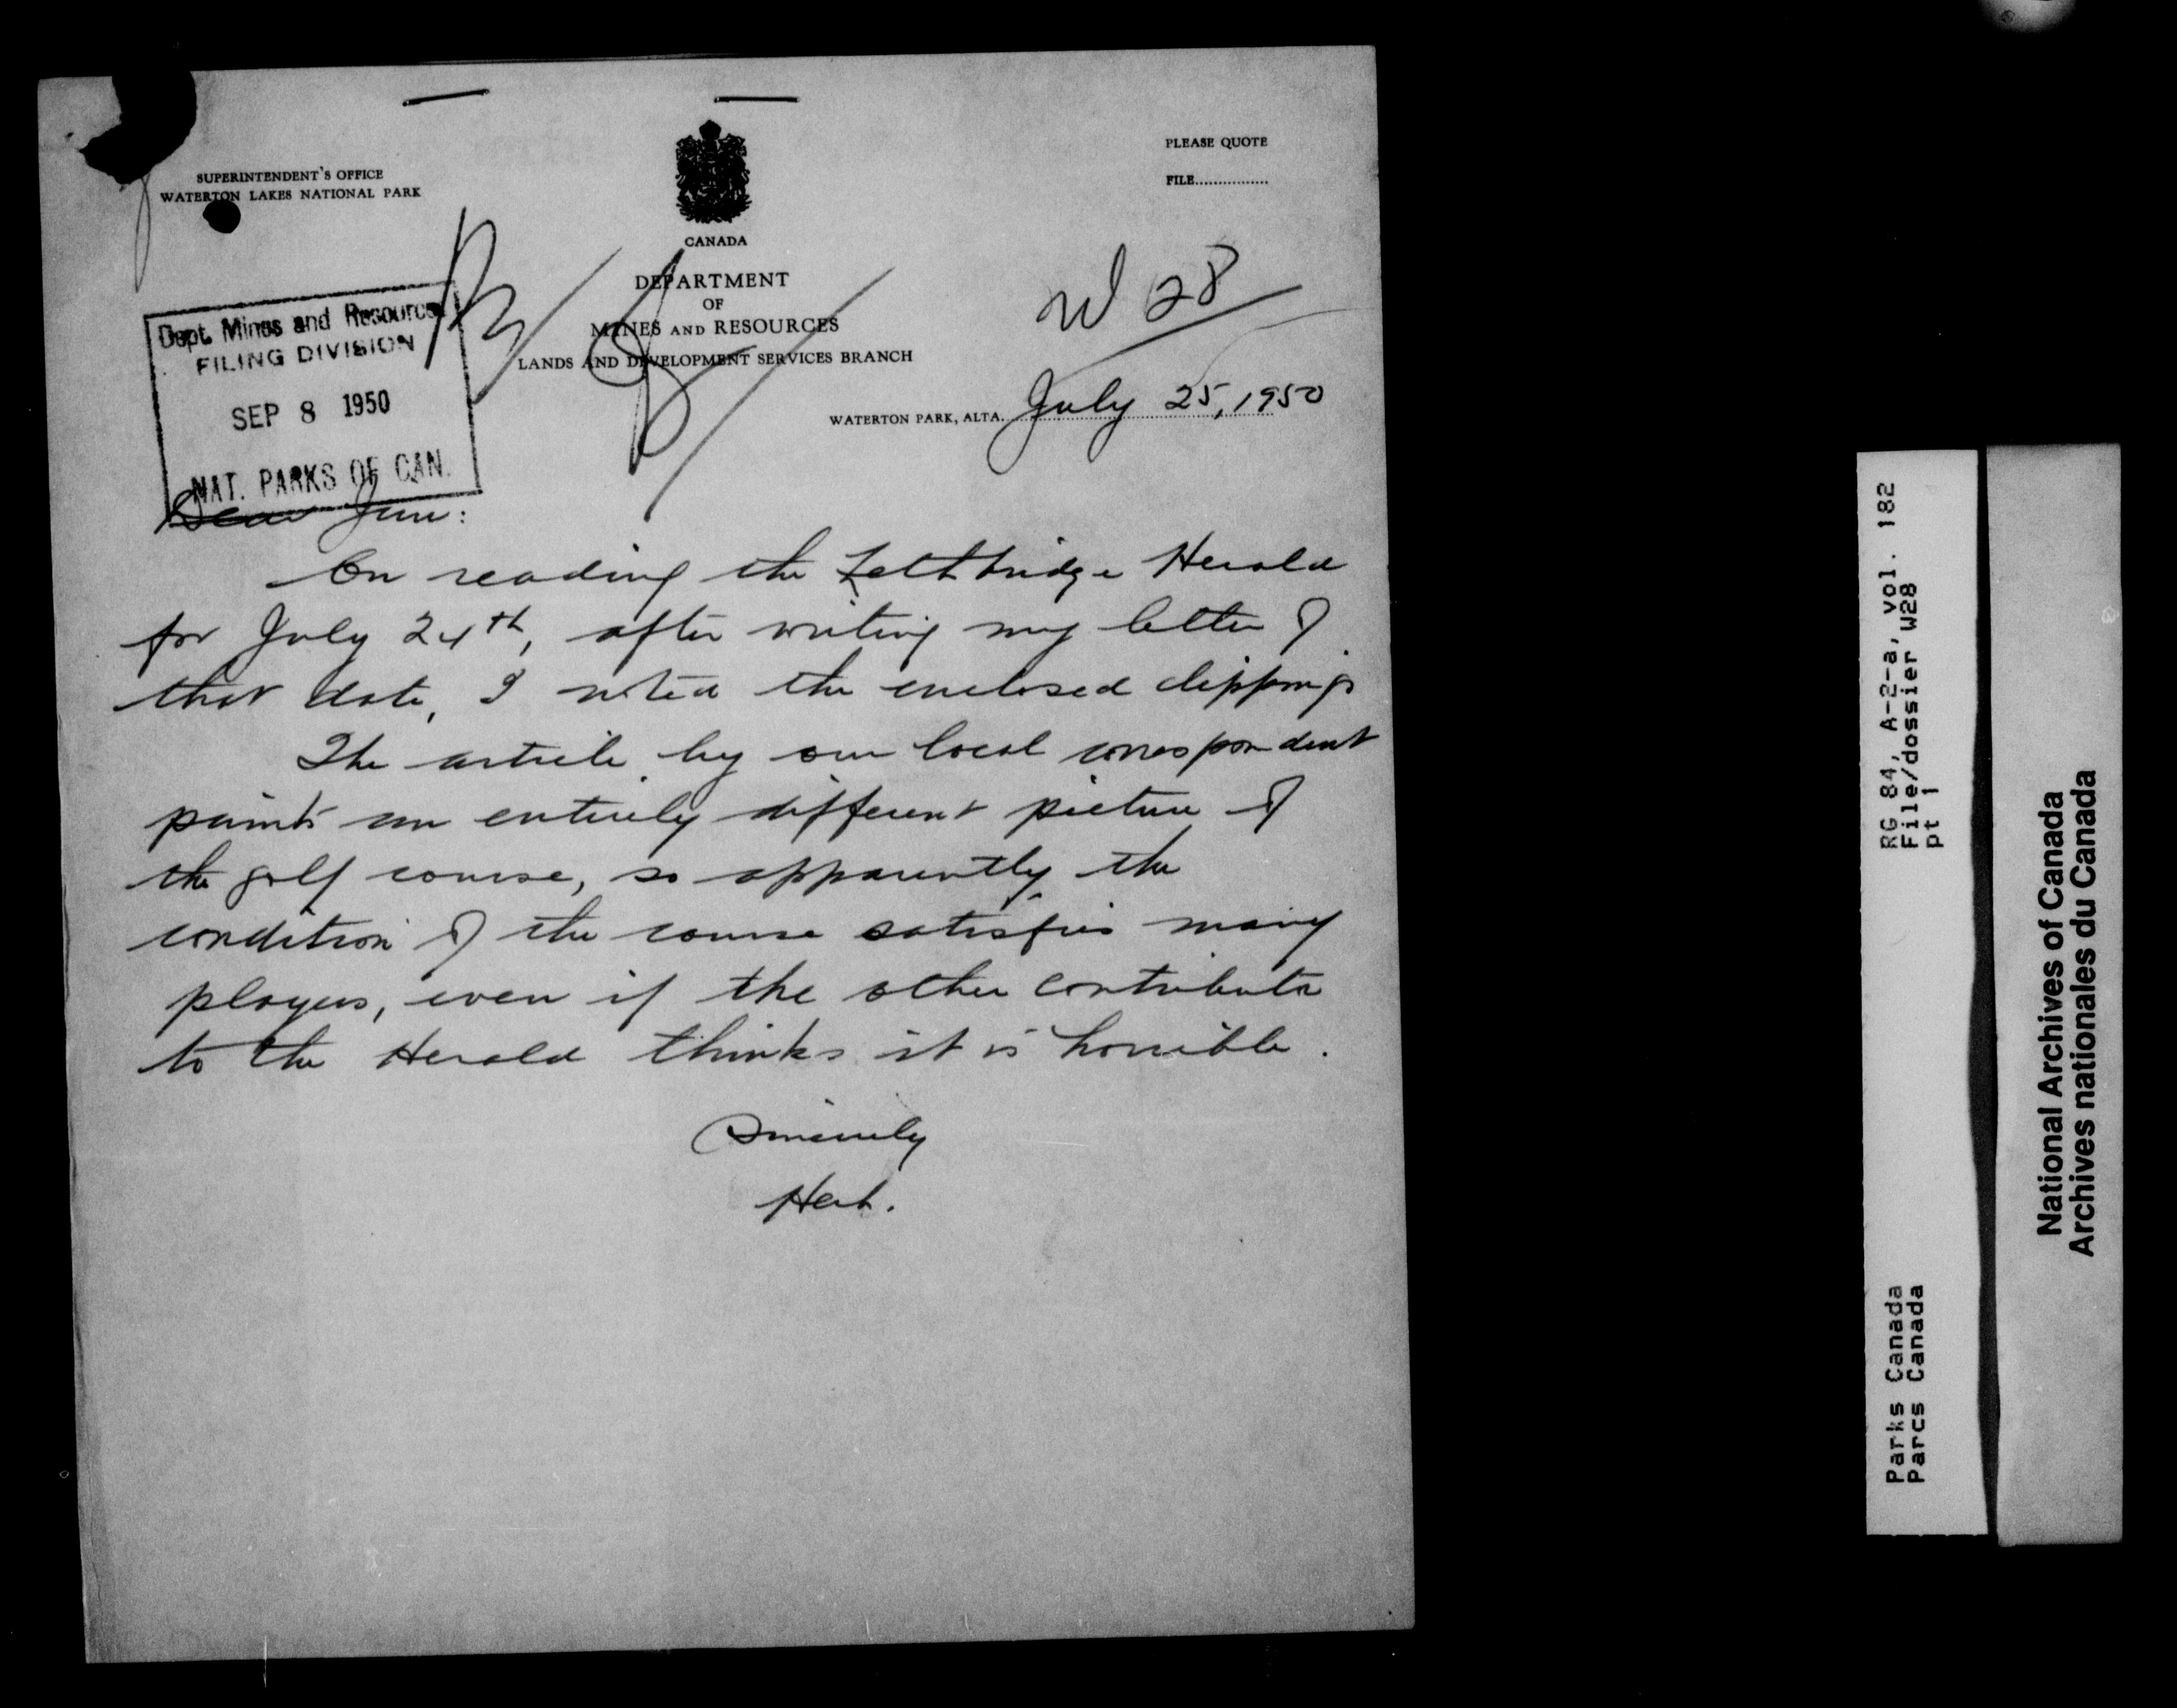 SUPERINTENDENT'S OFFICE
WATERTON LAKES NATIONAL PARK
PLEASE QUOTE
FILE................
CANADA
DEPARTMENT
OF
MINES AND RESOURCES
LANDS AND DEVELOPMENT SERVICES BRANCH
W 28
WATERTON PARK, ALTA. July 25, 1950
Dept. Mines and Resources
FILING DIVISION
SEP 8 1950
NAT. PARKS OF CAN.
Dear Jim:
On reading the Lethbridge Herald
for July 24th, after writing my letter of
that date, I noted the enclosed clippings
The article by our local correspondent
paints an entirely different picture of
the golf course, so apparently the
condition of the course satisfies many
players, even if the other contributor
to the Herald thinks it is horrible.
Sincerely
Herb.
RG 84, A-2-a, vol. 182
File/dossier W28
pt 1
Parks Canada
Parcs Canada
National Archives of Canada
Archives nationales du Canada